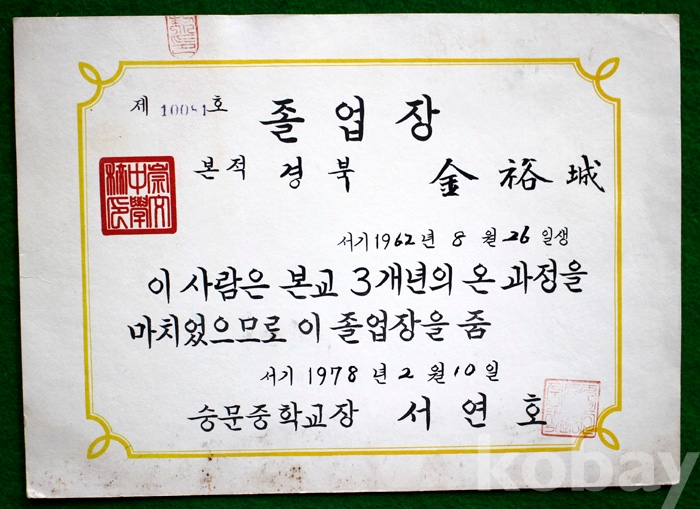 제 10051호
졸업장
본적 경북 金裕城
서기 1962년 8월 26일생
이 사람은 본교 3개년의 온 과정을
마치었으므로 이 졸업장을 줌
서기 1978년 2월 10일
숭문중학교장 서연호
崇文中學校印
kobay